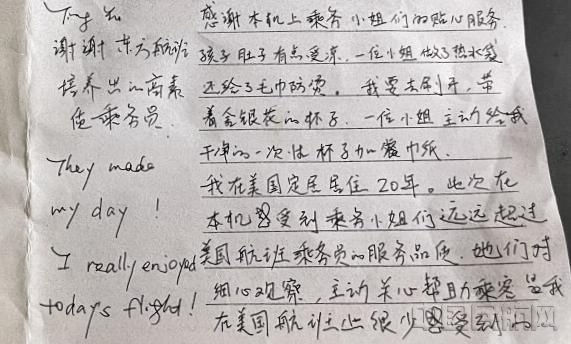 感谢本机上乘务小姐们的贴心服务.
孩子肚子有点受凉.一位小姐做了热水袋
还给了毛巾防烫。我要去剧开,带
着金银花的杯子.一位小姐主动给我
干净的一次性杯子加餐巾纸.
我在美国定居居住20年。此次在
本机感受到乘务小姐们远远超过
美国航班乘务员的服务品质.她们对
细心观察,主动关心帮助乘客是我
在美国航班上很少感受到的
谢谢东方航班
培养出的高素
质乘务员.
They made
my day !
I really enjoyed
todays flight!